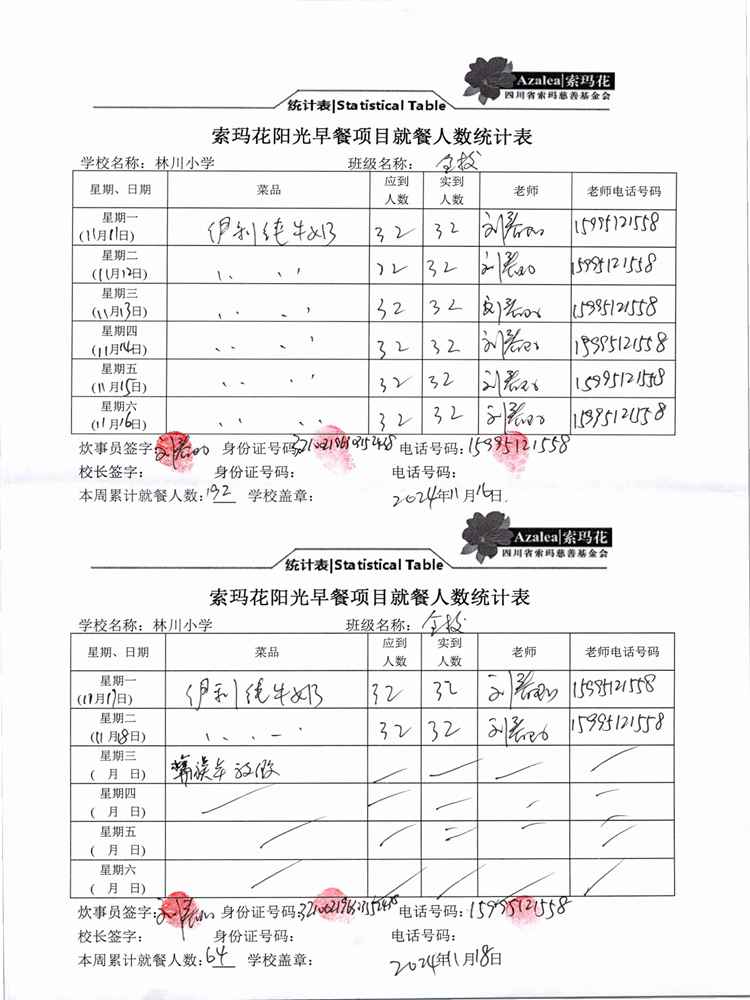 Azalea|索玛花
四川省索玛慈善基金会
统计表|Statistical Table
索玛花阳光早餐项目就餐人数统计表
学校名称：林川小学 班级名称：全校
星期、日期 菜品 应到人数 实到人数 老师 老师电话号码
星期一 (11月11日) 伊利纯牛奶 32 32 刘 15995121558
星期二 (11月12日) 〃 32 32 刘 15995121558
星期三 (11月13日) 〃 32 32 刘 15995121558
星期四 (11月14日) 〃 32 32 刘 15995121558
星期五 (11月15日) 〃 32 32 刘 15995121558
星期六 (11月16日) 〃 32 32 刘 15995121558
炊事员签字：刘 身份证号码： 电话号码：15995121558
校长签字： 身份证号码： 电话号码：
本周累计就餐人数：192 学校盖章： 2024年11月16日.
Azalea|索玛花
四川省索玛慈善基金会
统计表|Statistical Table
索玛花阳光早餐项目就餐人数统计表
学校名称：林川小学 班级名称：全校
星期、日期 菜品 应到人数 实到人数 老师 老师电话号码
星期一 (11月17日) 伊利纯牛奶 32 32 刘 15995121558
星期二 (11月18日) 〃 32 32 刘 15995121558
星期三 ( 月 日) 年放假
星期四 ( 月 日)
星期五 ( 月 日)
星期六 ( 月 日)
炊事员签字：刘 身份证号码： 电话号码：15995121558
校长签字： 身份证号码： 电话号码：
本周累计就餐人数：64 学校盖章： 2024年11月18日